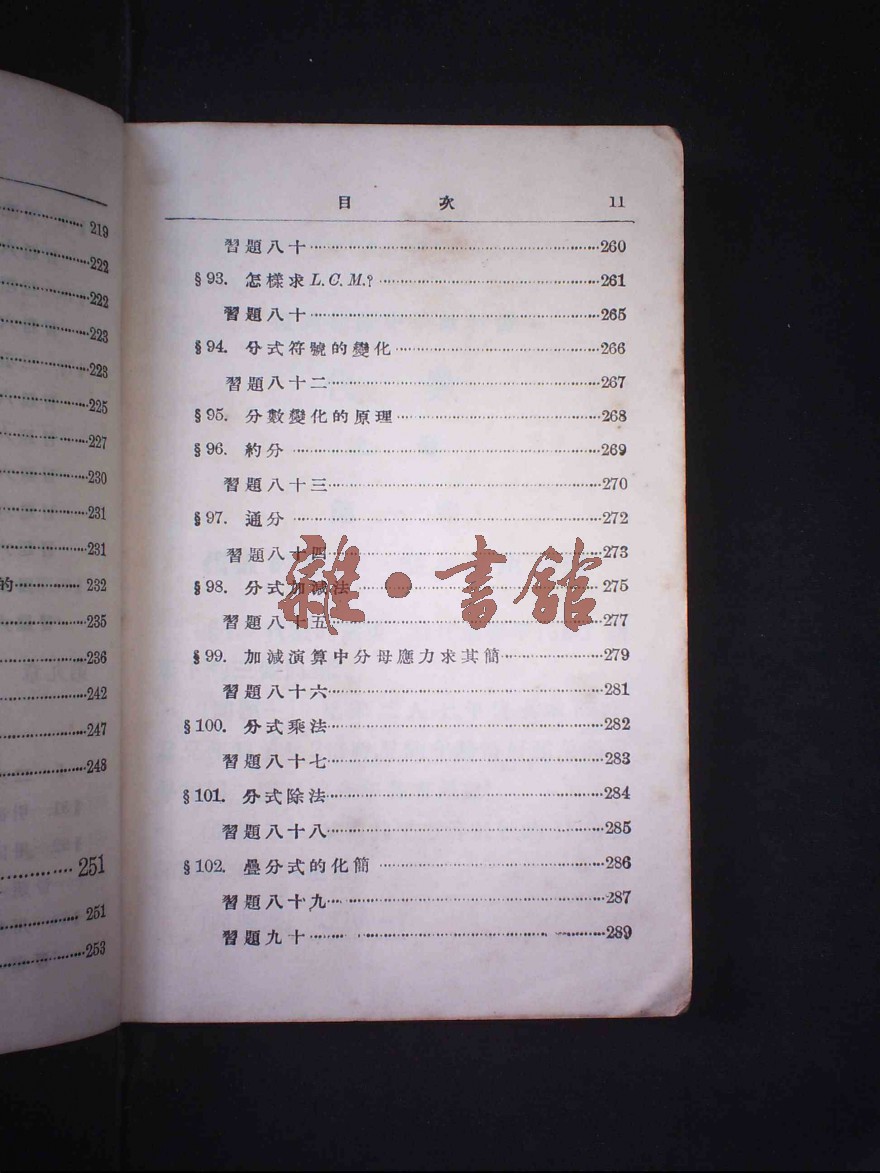 219
222
222
223
223
225
227
230
231
231
的 232
235
236
242
247
248
251
251
253
目 次 11
習題八十 260
§93. 怎樣求 L. C. M.? 261
習題八十 265
§94. 分式符號的變化 266
習題八十二 267
§95. 分數變化的原理 268
§96. 約分 269
習題八十三 270
§97. 通分 272
習題八十四 273
§98. 分式加減法 275
習題八十五 277
§99. 加減演算中分母應力求其簡 279
習題八十六 281
§100. 分式乘法 282
習題八十七 283
§101. 分式除法 284
習題八十八 285
§102. 疊分式的化簡 286
習題八十九 287
習題九十 289
雜·書館